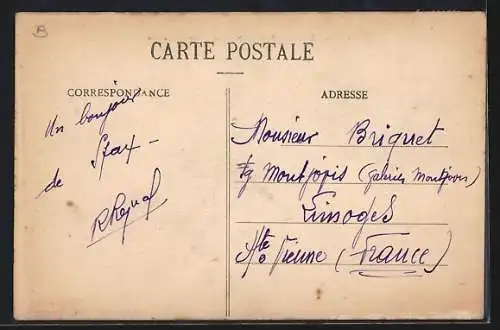 CARTE POSTALE
CORRESPONDANCE
Un bonjour
de Sfax -
ADRESSE
Monsieur Briquet
Fg Montjovis (Galeries Montjovis)
Limoges
Hte Vienne (France)